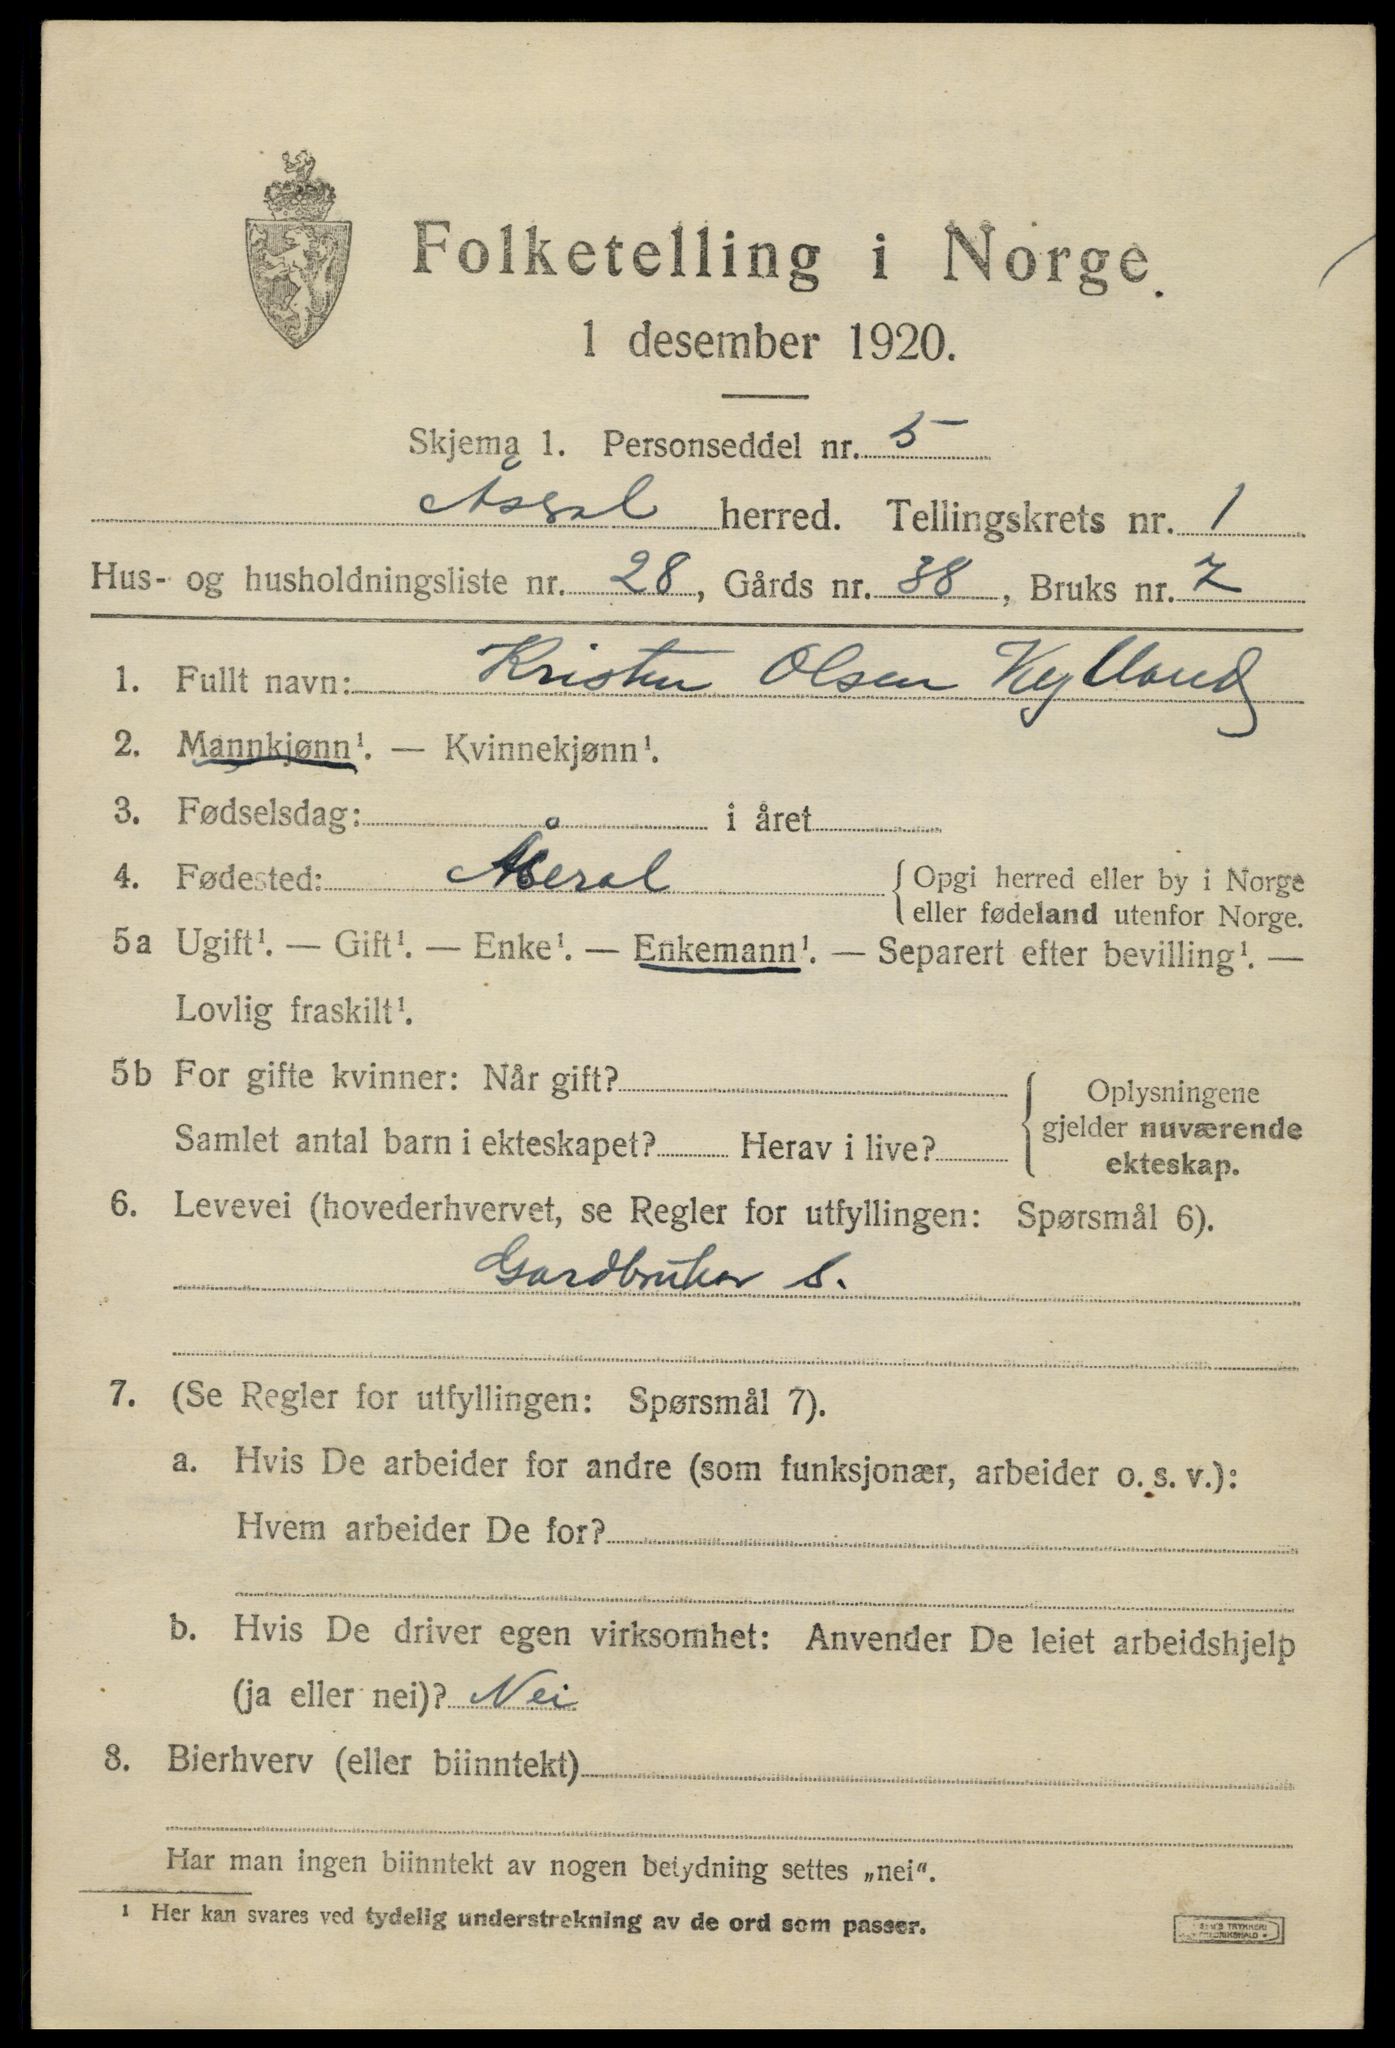 Folketelling i Norge
1 desember 1920.
Skjema 1. Personseddel nr. 5
Åseral herred. Tellingskrets nr. 1
Hus- og husholdningsliste nr. 28, Gårds nr. 38, Bruks nr. 7
1. Fullt navn: Kristen Olsen Kylland
2. Mannkjønn¹. — Kvinnekjønn¹.
3. Fødselsdag: i året
4. Fødested: Åseral {Opgi herred eller by i Norge
eller fødeland utenfor Norge.
5a Ugift¹. — Gift¹. — Enke¹. — Enkemann¹. — Separert efter bevilling¹. —
Lovlig fraskilt¹.
5b For gifte kvinner: Når gift?
Samlet antal barn i ekteskapet? Herav i live?
Oplysningene
gjelder nuværende
ekteskap.
6. Levevei (hovederhvervet, se Regler for utfyllingen: Spørsmål 6).
Gardbruker S.
7. (Se Regler for utfyllingen: Spørsmål 7).
a. Hvis De arbeider for andre (som funksjonær, arbeider o. s. v.):
Hvem arbeider De for?
b. Hvis De driver egen virksomhet: Anvender De leiet arbeidshjelp
(ja eller nei)? Nei
8. Bierhverv (eller biinntekt)
Har man ingen biinntekt av nogen betydning settes „nei“.
1 Her kan svares ved tydelig understrekning av de ord som passer.
TRYKKERI
FREDRIKSHALD